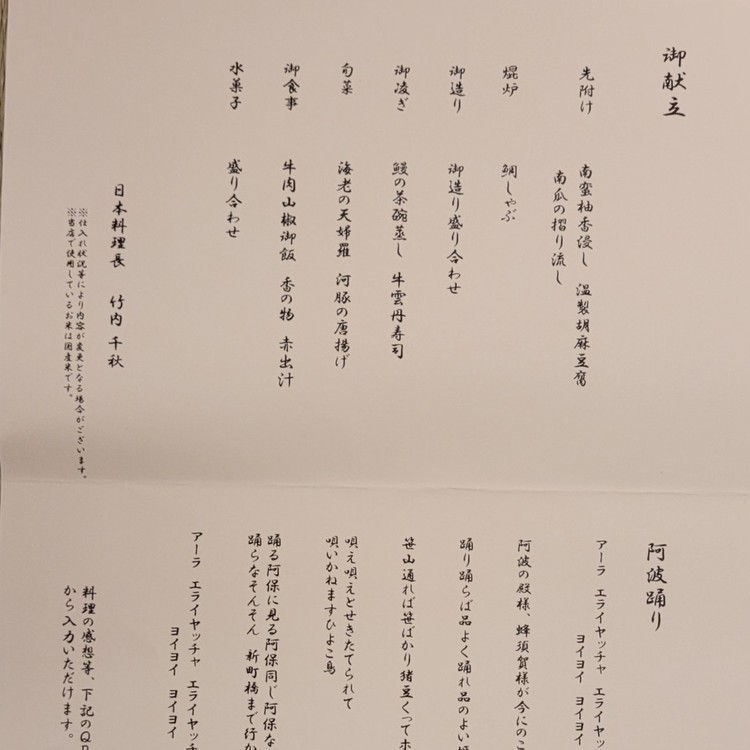 御献立
先附け 南蛮柚香浸し 温製胡麻豆腐
南瓜の摺り流し
焜炉 鯛しゃぶ
御造り 御造り盛り合わせ
御凌ぎ 鰻の茶碗蒸し 牛雲丹寿司
旬菜 海老の天婦羅 河豚の唐揚げ
御食事 牛肉山椒御飯 香の物 赤出汁
水菓子 盛り合わせ
日本料理長 竹内 千秋
※仕入れ状況等により内容が変更となる場合がございます。
※当店で使用しているお米は国産米です。
阿波踊り
アーラ エライヤッチャ エライヤッ
ヨイヨイ ヨイヨイ
阿波の殿様、蜂須賀様が今にのこ
踊り踊らば品よく踊れ品のよい
笹山通れば笹ばかり猪豆くってホ
唄え唄えとせきたてられて
唄いかねますひよこ鳥
踊る阿保に見る阿保同じ阿保な
踊らなそんそん 新町橋まで行か
アーラ エライヤッチャ エライヤッチ
ヨイヨイ ヨイヨイ
料理の感想等、下記のQR
から入力いただけます。